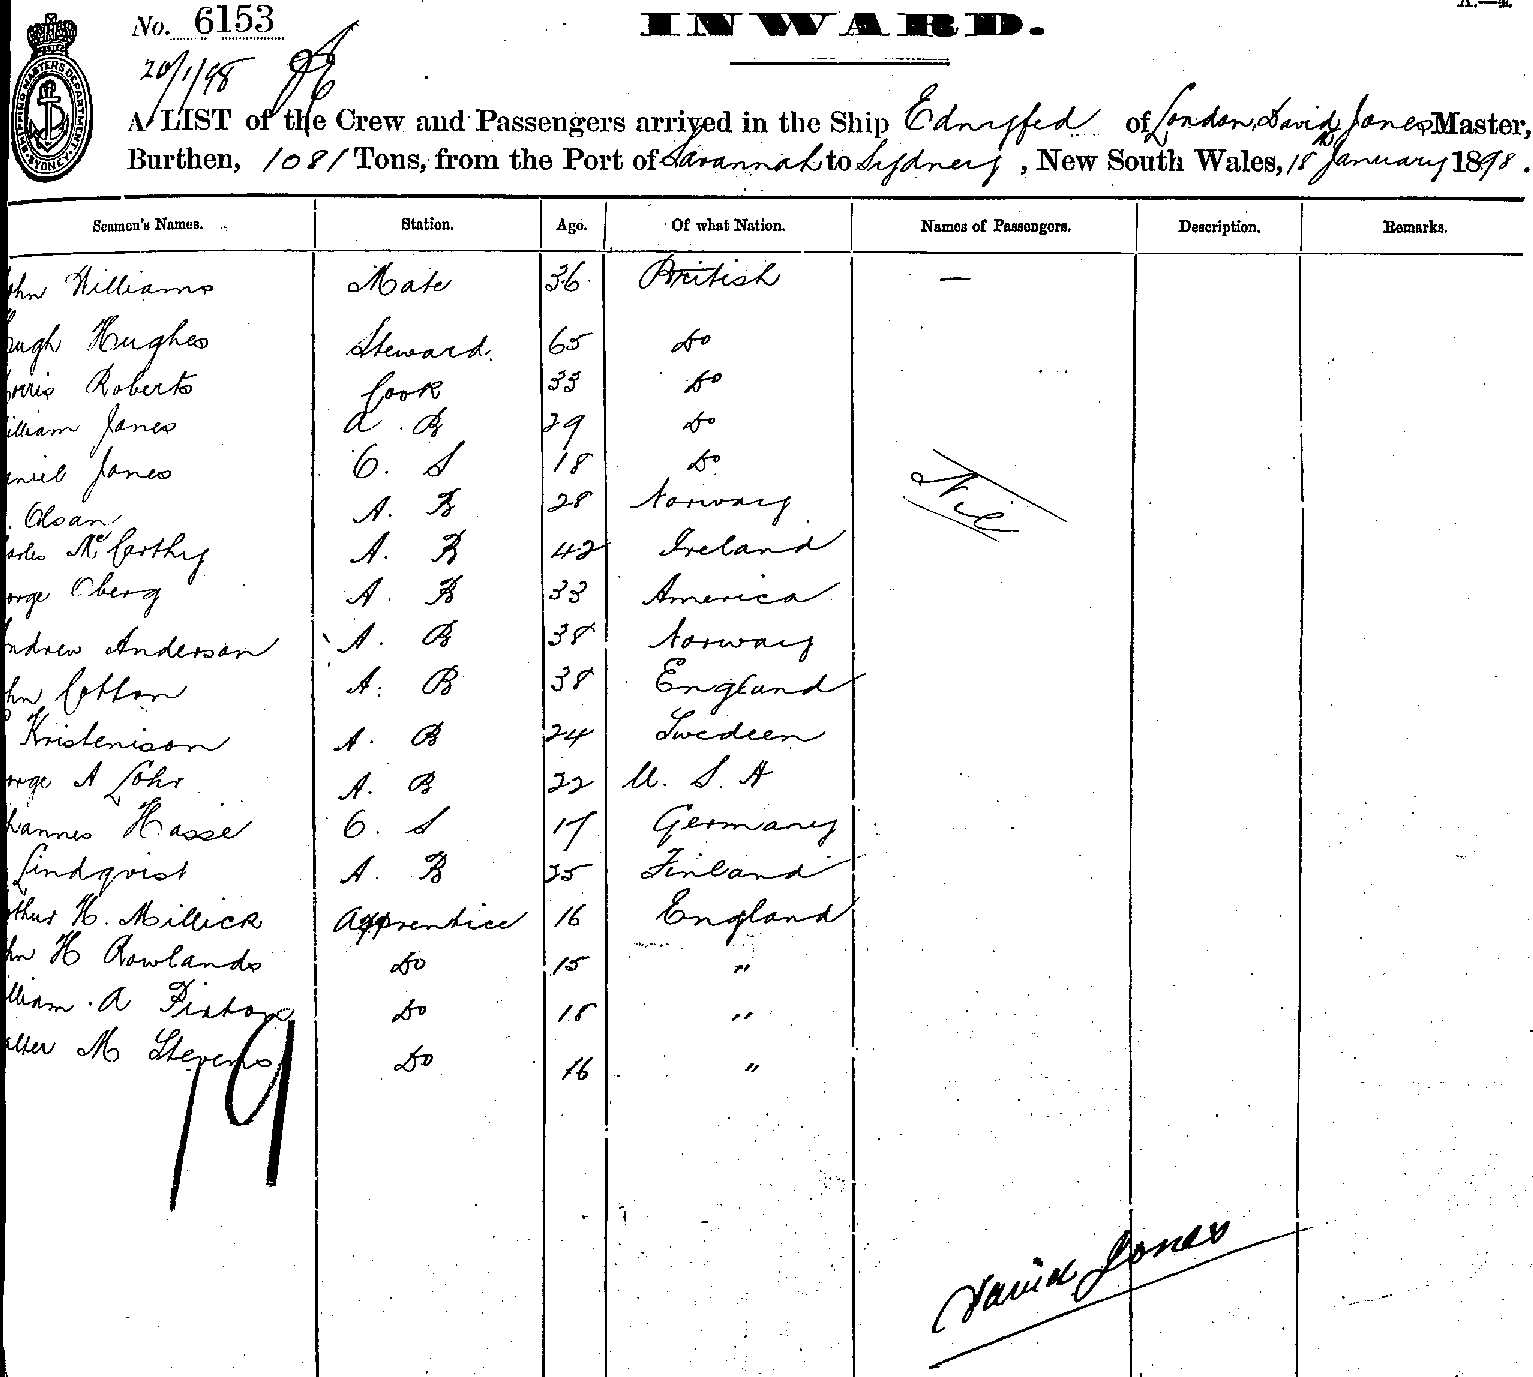 No. 6153
INWARD.
20/1/98
A LIST of the Crew and Passengers arrived in the Ship Ednyfed of London, David Jones Master,
Burthen, 1081 Tons, from the Port of Savannah to Sydney, New South Wales, 18th January 1898.
Seamen's Names. Station. Age. Of what Nation. Names of Passengers. Description. Remarks.
ohn Williams Mate 36 British —
ugh Hughes Steward. 65 Do
orris Roberts Cook 33 Do
illiam Jones A. B 29 Do
aniel Jones O. S 18 Do
Nil
. Olsan A. B 28 Norway
arles McCarthy A. B 42 Ireland
orge Oberg A. B 33 America
ndrew Anderson A. B 38 Norway
ohn Cotton A. B 38 England
Kristenison A. B 24 Swedeen
orge A Lohr A. B 22 U. S. A
hannes Hasse O. S 17 Germany
Lindqvist A. B 25 Finland
rthur H. Millick Apprentice 16 England
ohn H Rowlands Do 15 "
illiam. A Do 18 "
alter M Stevens Do 16 "
19
David Jones